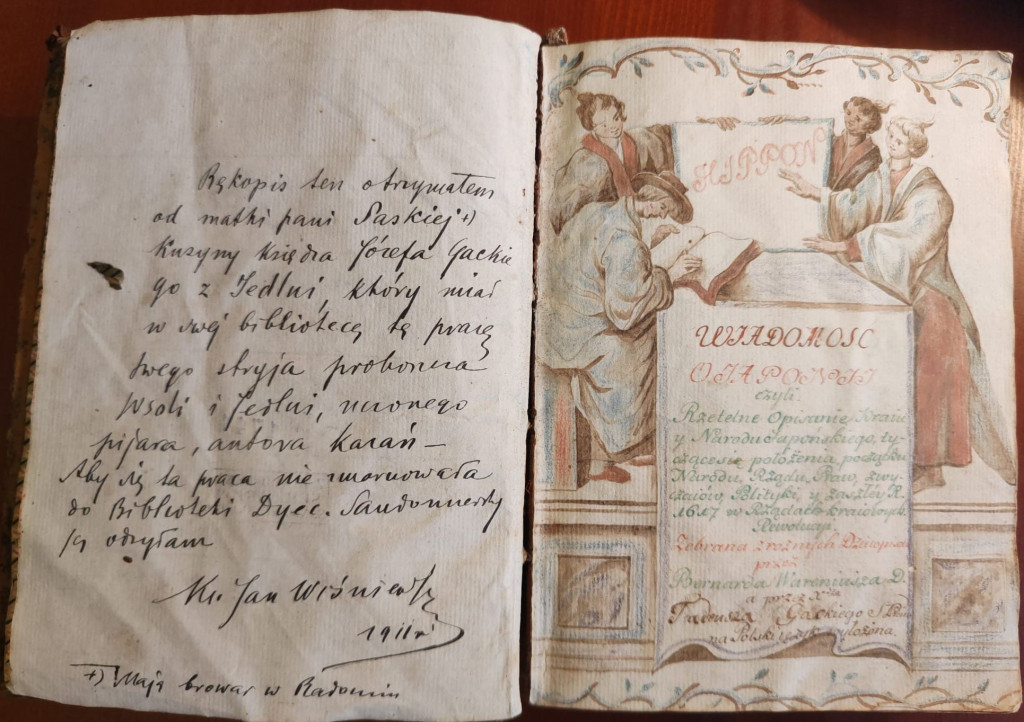 Rękopis ten otrzymałem
od matki pani Saskiej +)
Kuzyny Księdza Józefa Gackie
go z Jedlni, który miał
w swej bibliotece tę pracę
swego stryja proboszcza
Wsoli i Jedlni, uczonego
pijara, autora kazań —
Aby się ta praca nie zmarnowała
do Biblioteki Dyec. Sandomiersky
ją odsyłam
Ks. Jan Wiśniewski
1911 r
+) Mają browar w Radomiu
NIPPON
WIADOMOSC
O IAPONII
czyli
Rzetelne Opisanie Kraiu
y Narodu Iapońskiego, ty-
czącesię położenia początku
Narodu, Rządu, Praw, zwy-
czaiów, Polityki, y zaszłey R.
1617 w Rządach kraiowych
Rewolucyi
Zebrana z rożnych Dzieiopisów
przez
Bernarda Wareniusza D.
a przez X
Tadeusza Gackiego
na Polski ięzyk wyłożona.